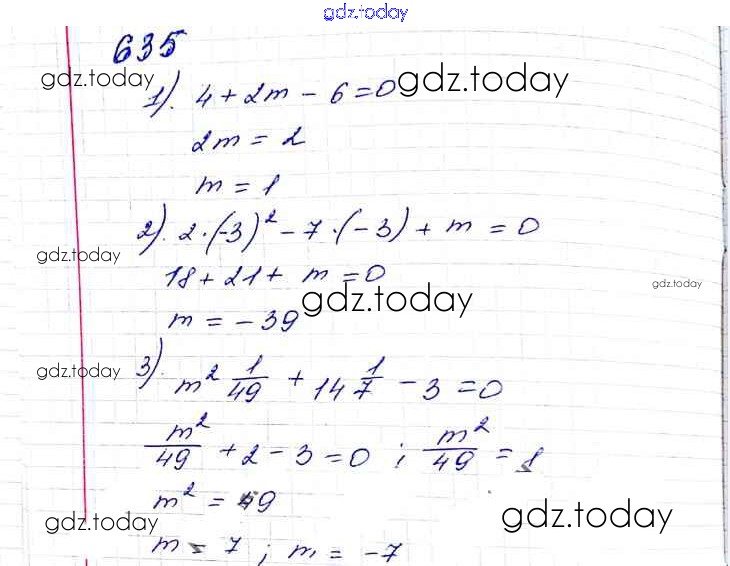 gdz.today
635
gdz.today
1). 4 + 2m - 6 = 0 gdz.today
2m = 2
m = 1
2). 2·(-3)² - 7·(-3) + m = 0
gdz.today
18 + 21 + m = 0
gdz.today
gdz.today
m = -39
3).
gdz.today
m² 1/49 + 14 1/7 - 3 = 0
m²/49 + 2 - 3 = 0 ; m²/49 = 1
m² = 49
gdz.today
gdz.today
m = 7 ; m = -7